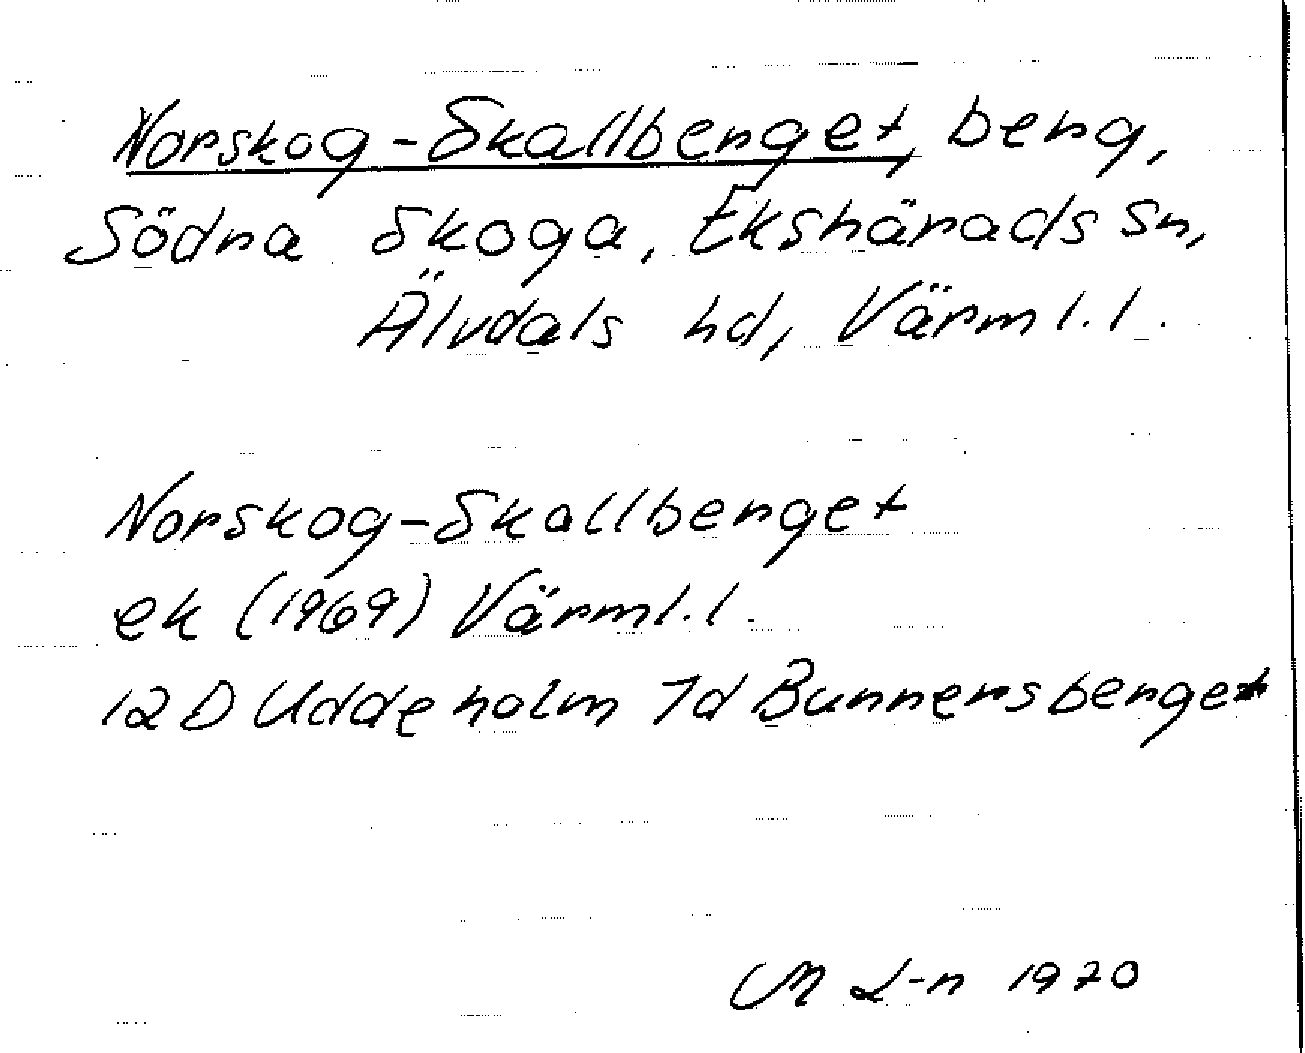 Norskog-Skallberget, berg,
Södra Skoga, Ekshärads sn,
Älvdals hd, Värml. l.
Norskog-Skallberget
ek (1969) Värml. l.
12D Uddeholm 7d Bunnersberget
M L-n 1970